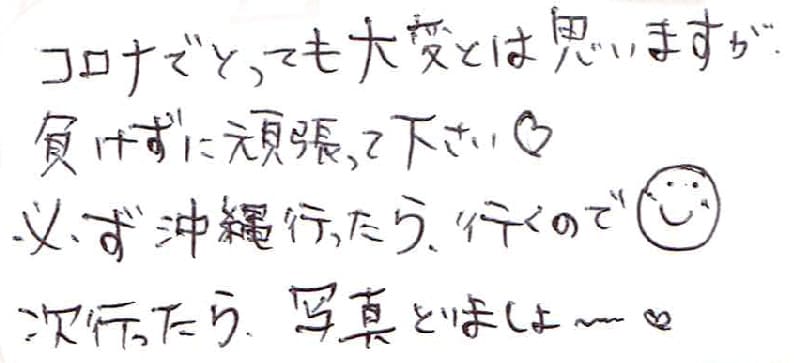 コロナでとっても大変とは思いますが、
負けずに頑張って下さい♡
必ず沖縄行ったら、行くので
次行ったら、写真とりましょ〜♡